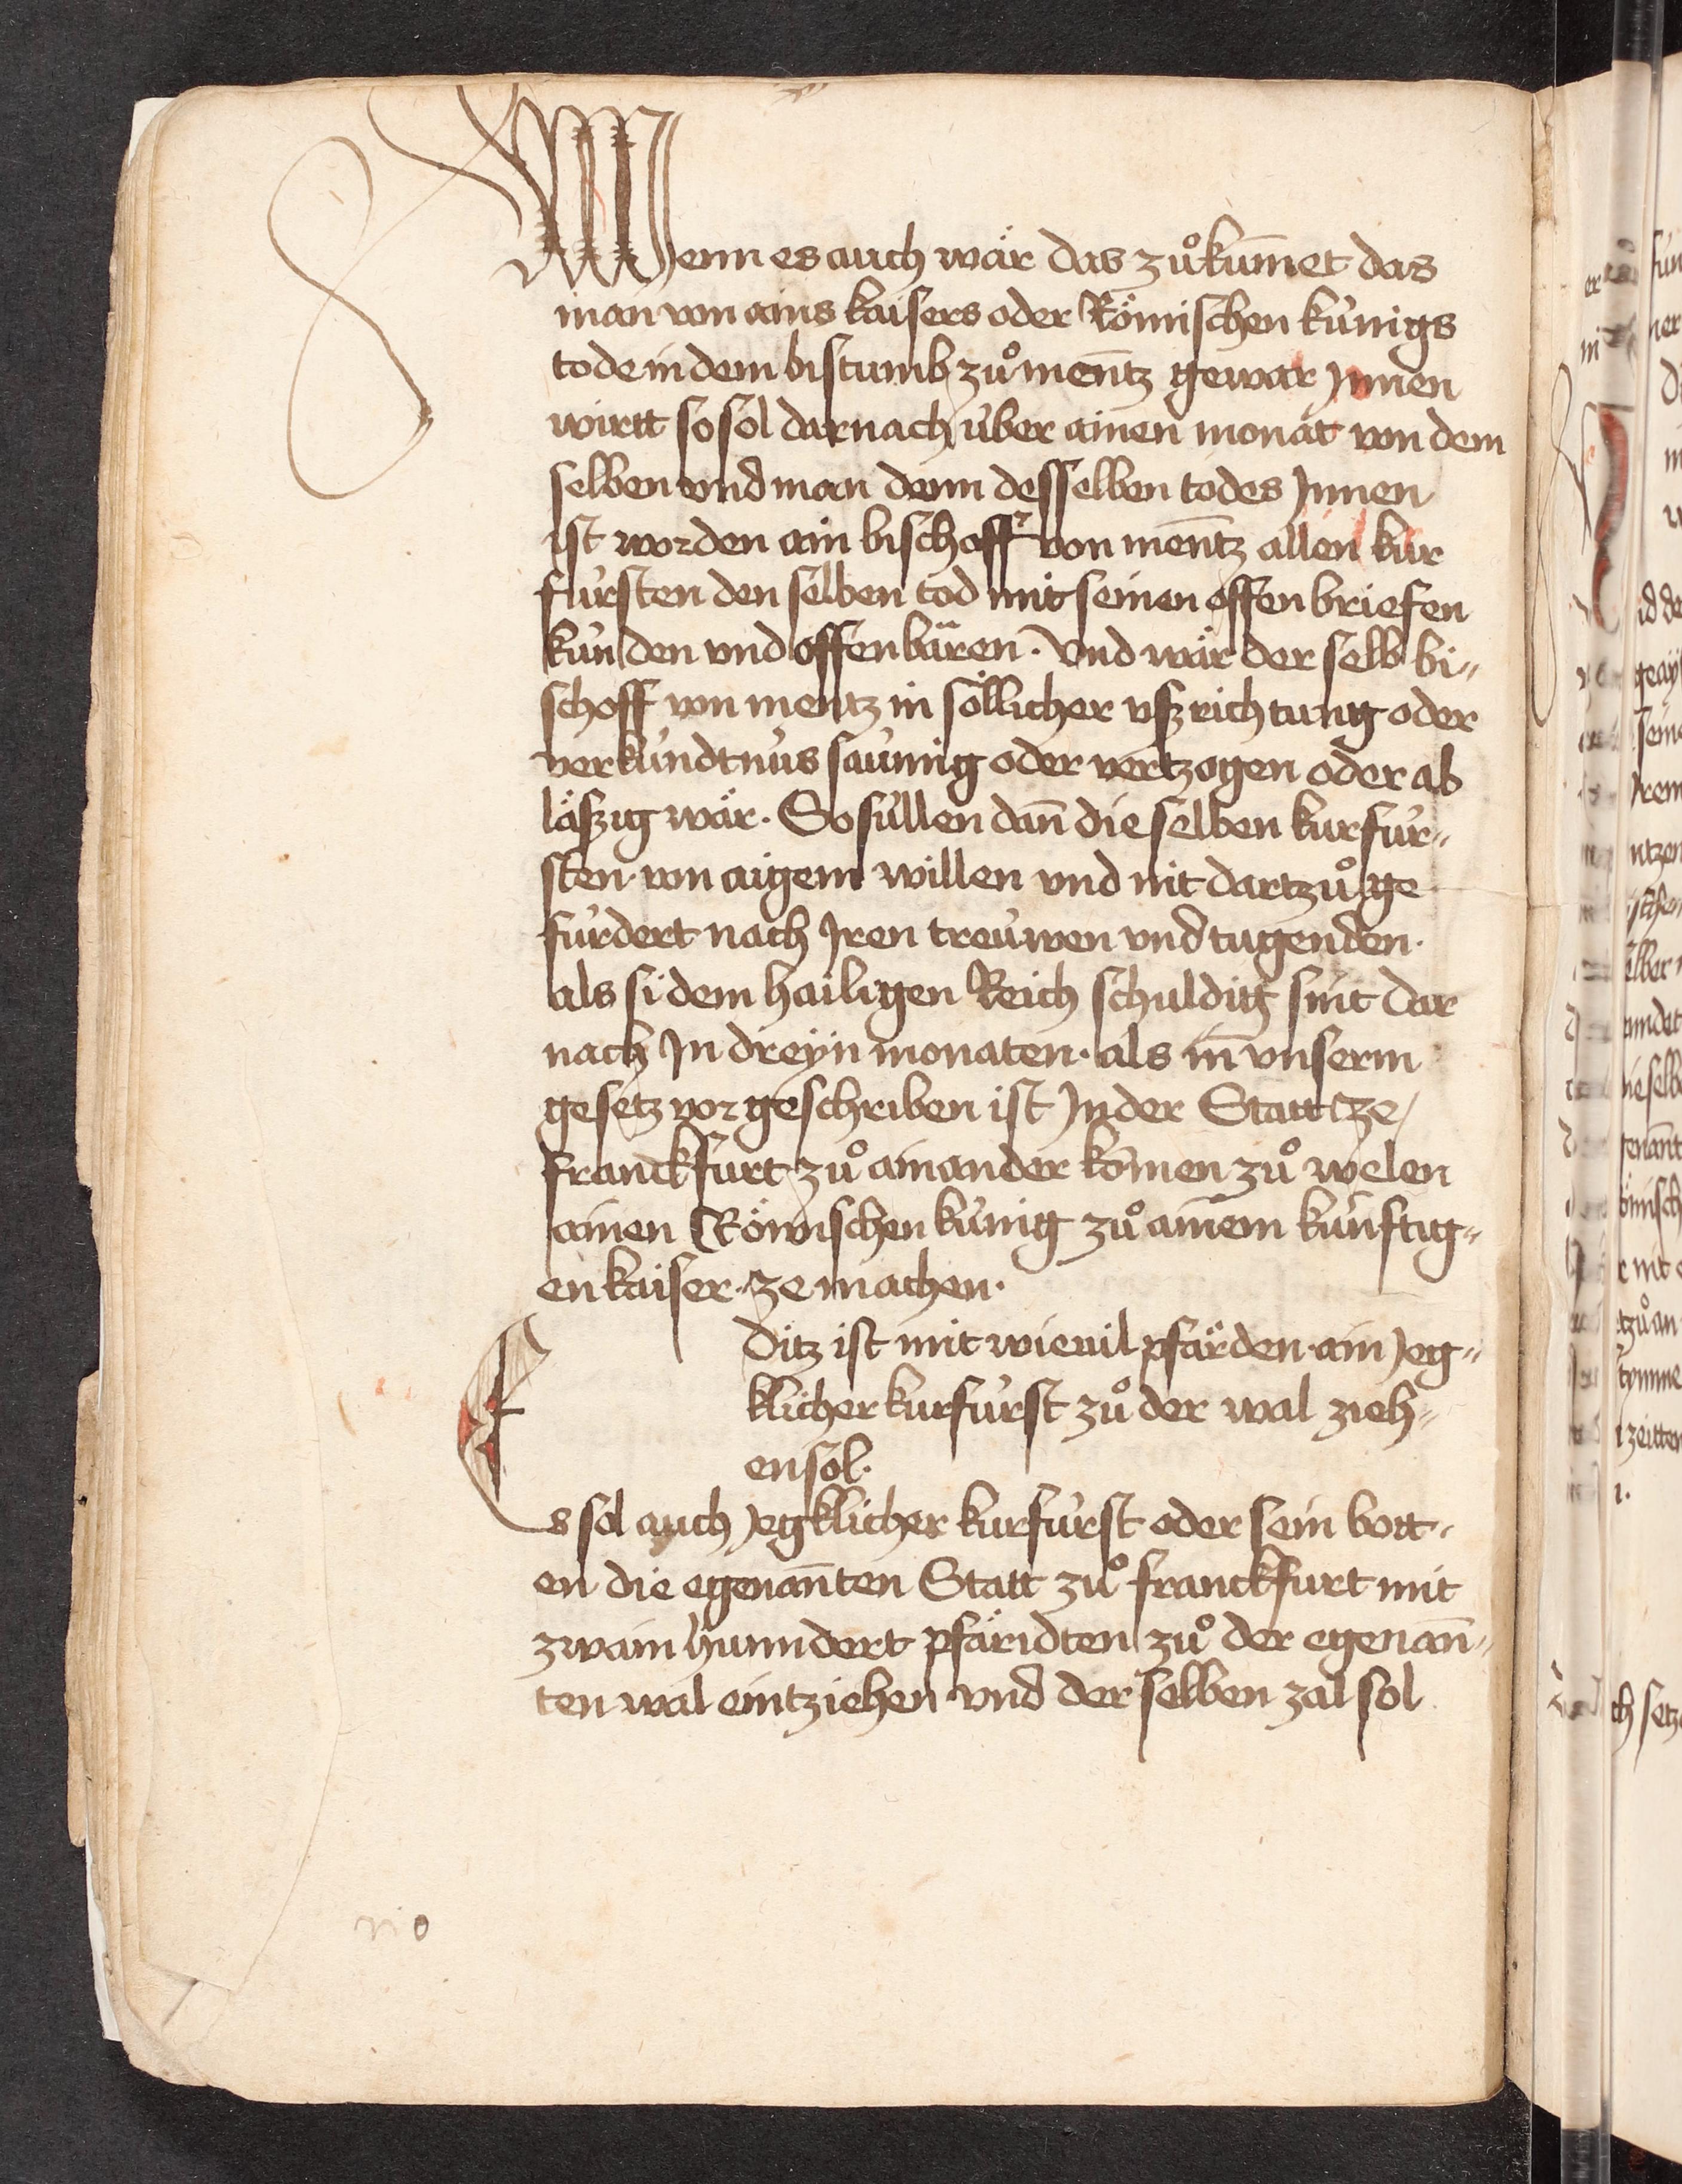 Wenn es auch wär das zuͦkum̄et das
man von ains kaisers oder Römischen künigs
tode in dem bistumb zuͦ mentz gewar Jnnen
wirtt so sol darnach über ainen monat von dem
selben vnd man denn desselben todes Jnnen
ist worden ain bischoff von mentz allen kur
fürsten den selben tod mit seinen offen briefen
künden vnd offenbären · Vnd wär der selb bi„
schoff von mentz in söllicher vſzrichtung oder
verkündtnüs saümig oder vertzogen oder ab
läſzig wär · So süllen dan̄ die selben kurfür„
sten von aigem willen vnd nit dartzuͦ ge
fürdert nach Jren treüwen vnd tugenden ·
als si dem hailigen Reich schuldig sint dar
nach Jn dreÿn monaten · als in̄ vnserm
gesetz vor geschriben ist Jn der Statt ze
franckfurt zuͦ ainander komen zuͦ welen
ainen Römischen künig zuͦ ainem künftig„
en kaiser · ze machen ·
Ditz ist mit wieuil pfärden ain Jeg„
klicher kurfürst zuͦ der wal zieh„
en sol ·
Es sol auch Jegklicher kurfürst oder sein bott„
en die egenan̄ten Statt zuͦ franckfurt mit
zwain hunndert pfäridten zuͦ der egenan̄„
ten wal eintziehen vnd der selben zal sol